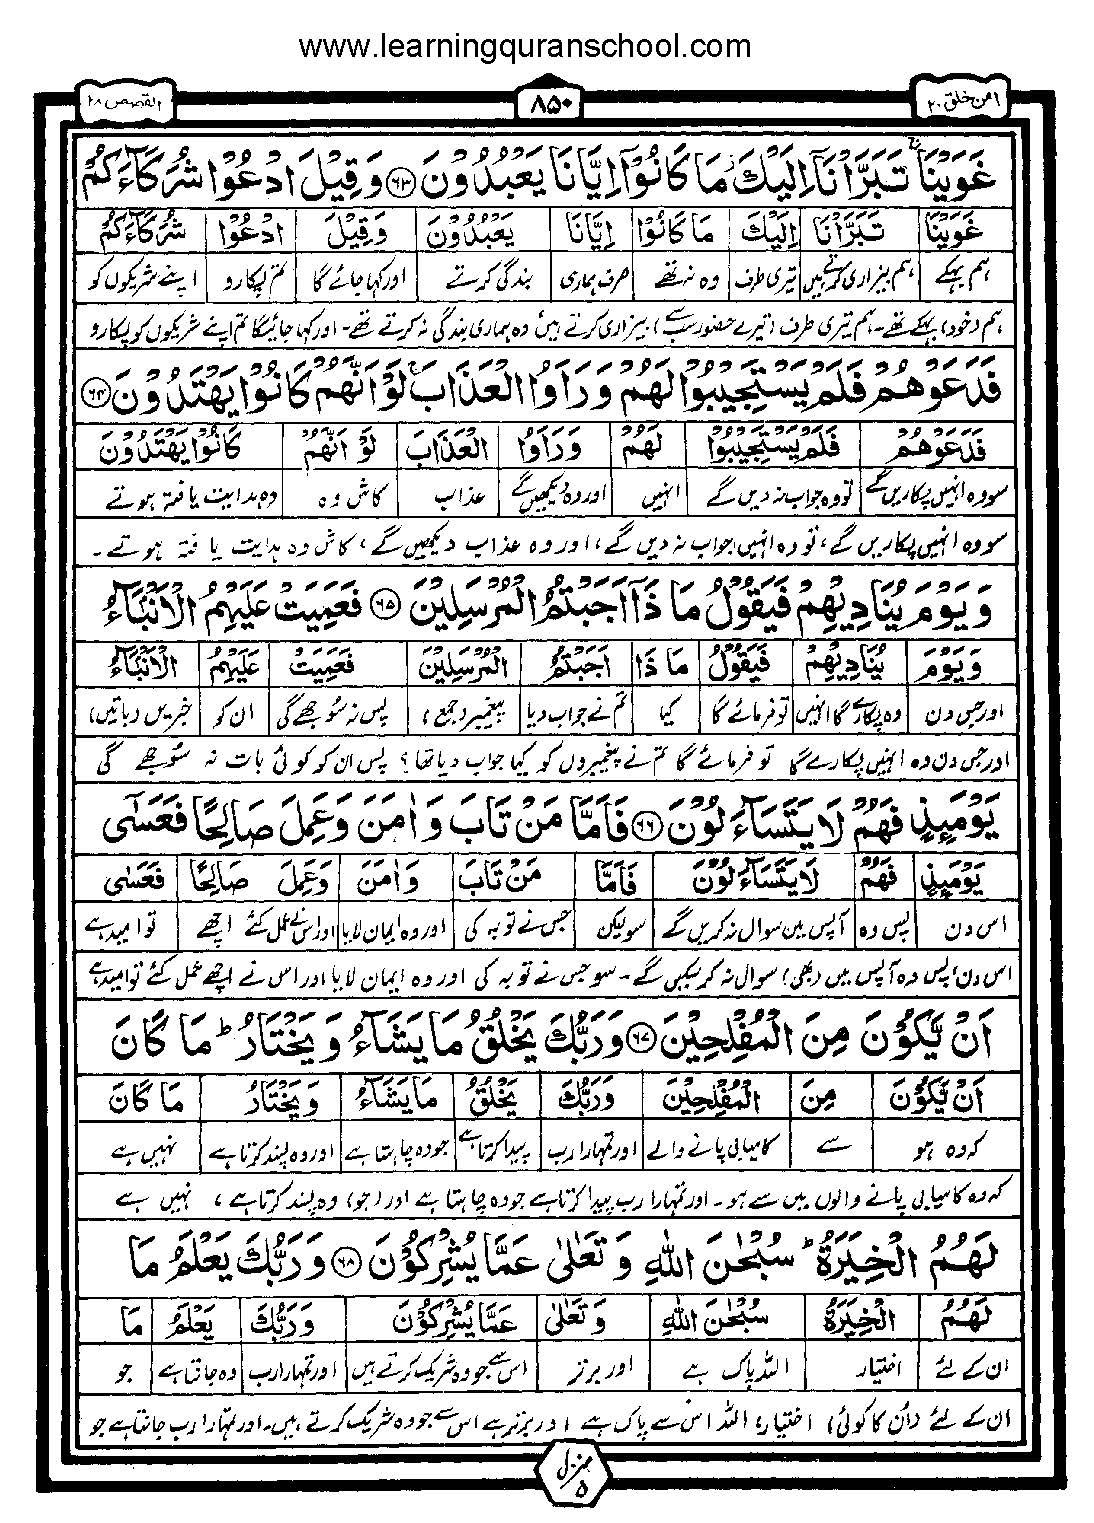 www.learningquranschool.com
امن خلق ۲۰ ۸۵۰ القصص ۲۸
غَوَيْنَا ۚ تَبَرَّاْنَآ اِلَيْكَ ۡ مَا كَانُوْٓا اِيَّانَا يَعْبُدُوْنَ ۶۳ وَقِيْلَ ادْعُوْا شُرَكَآءَكُمْ
غَوَيْنَا تَبَرَّاْنَا اِلَيْكَ مَا كَانُوْا اِيَّانَا يَعْبُدُوْنَ وَقِيْلَ ادْعُوْا شُرَكَآءَكُمْ
ہم بہکے ہم بیزاری کرتے ہیں تیری طرف وہ نہ تھے صرف ہماری بندگی کرتے اور کہا جائے گا تم پکارو اپنے شریکوں کو
ہم (خود) بہکے تھے۔ ہم تیری طرف (تیرے حضور سب سے) بیزاری کرتے ہیں وہ ہماری بندگی نہ کرتے تھے۔ اور کہا جائیگا تم اپنے شریکوں کو پکارو
فَدَعَوْهُمْ فَلَمْ يَسْتَجِيْبُوْا لَهُمْ وَرَاَوُا الْعَذَابَ ۚ لَوْ اَنَّهُمْ كَانُوْا يَهْتَدُوْنَ ۶۴
فَدَعَوْهُمْ فَلَمْ يَسْتَجِيْبُوْا لَهُمْ وَرَاَوُا الْعَذَابَ لَوْ اَنَّهُمْ كَانُوْا يَهْتَدُوْنَ
سو وہ انہیں پکاریں گے تو وہ جواب نہ دیں گے انہیں اور وہ دیکھیں گے عذاب کاش وہ وہ ہدایت یافتہ ہوتے
سو وہ انہیں پکاریں گے، تو وہ انہیں جواب نہ دیں گے، اور وہ عذاب دیکھیں گے، کاش وہ ہدایت یافتہ ہوتے۔
وَيَوْمَ يُنَادِيْهِمْ فَيَقُوْلُ مَا ذَآ اَجَبْتُمُ الْمُرْسَلِيْنَ ۶۵ فَعَمِيَتْ عَلَيْهِمُ الْاَنْۢبَآءُ
وَيَوْمَ يُنَادِيْهِمْ فَيَقُوْلُ مَا ذَا اَجَبْتُمُ الْمُرْسَلِيْنَ فَعَمِيَتْ عَلَيْهِمُ الْاَنْۢبَآءُ
اور جس دن وہ پکارے گا انہیں تو فرمائے گا کیا تم نے جواب دیا پیغمبر (جمع) پس نہ سوجھے گی ان کو خبریں (باتیں)
اور جس دن وہ انہیں پکارے گا تو فرمائے گا تم نے پیغمبروں کو کیا جواب دیا تھا؟ پس ان کو کوئی بات نہ سوجھے گی
يَوْمَئِذٍ فَهُمْ لَا يَتَسَآءَلُوْنَ ۶۶ فَاَمَّا مَنْ تَابَ وَاٰمَنَ وَعَمِلَ صَالِحًا فَعَسٰٓى
يَوْمَئِذٍ فَهُمْ لَا يَتَسَآءَلُوْنَ فَاَمَّا مَنْ تَابَ وَاٰمَنَ وَعَمِلَ صَالِحًا فَعَسٰٓى
اس دن پس وہ آپس میں سوال نہ کریں گے سو لیکن جس نے توبہ کی اور وہ ایمان لایا اور اس نے عمل کئے اچھے تو امید ہے
اس دن، پس وہ آپس میں (بھی) سوال نہ کر سکیں گے۔ سو جس نے توبہ کی اور وہ ایمان لایا اور اس نے اچھے عمل کئے تو امید ہے
اَنْ يَّكُوْنَ مِنَ الْمُفْلِحِيْنَ ۶۷ وَرَبُّكَ يَخْلُقُ مَا يَشَآءُ وَيَخْتَارُ ؕ مَا كَانَ
اَنْ يَّكُوْنَ مِنَ الْمُفْلِحِيْنَ وَرَبُّكَ يَخْلُقُ مَا يَشَآءُ وَيَخْتَارُ مَا كَانَ
کہ وہ ہو سے کامیابی پانے والے اور تمہارا رب پیدا کرتا ہے جو وہ چاہتا ہے اور وہ پسند کرتا ہے نہیں ہے
کہ وہ کامیابی پانے والوں میں سے ہو۔ اور تمہارا رب پیدا کرتا ہے جو وہ چاہتا ہے اور (جو) وہ پسند کرتا ہے، نہیں ہے
لَهُمُ الْخِيَرَةُ ؕ سُبْحٰنَ اللّٰهِ وَتَعٰلٰى عَمَّا يُشْرِكُوْنَ ۶۸ وَرَبُّكَ يَعْلَمُ مَا
لَهُمُ الْخِيَرَةُ سُبْحٰنَ اللّٰهِ وَتَعٰلٰى عَمَّا يُشْرِكُوْنَ وَرَبُّكَ يَعْلَمُ مَا
ان کے لئے اختیار اللہ پاک ہے اور برتر اس سے جو وہ شریک کرتے ہیں اور تمہارا رب وہ جانتا ہے جو
ان کے لئے (ان کا کوئی) اختیار، اللہ اس سے پاک ہے اور برتر ہے اس سے جو وہ شریک کرتے ہیں۔ اور تمہارا رب جانتا ہے جو
منزل ۵